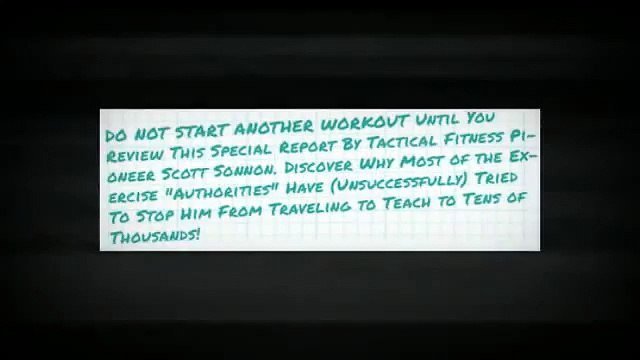 DO NOT START ANOTHER WORKOUT UNTIL YOU
REVIEW THIS SPECIAL REPORT BY TACTICAL FITNESS PI-
ONEER SCOTT SONNON. DISCOVER WHY MOST OF THE EX-
ERCISE "AUTHORITIES" HAVE (UNSUCCESSFULLY) TRIED
TO STOP HIM FROM TRAVELING TO TEACH TO TENS OF
THOUSANDS!